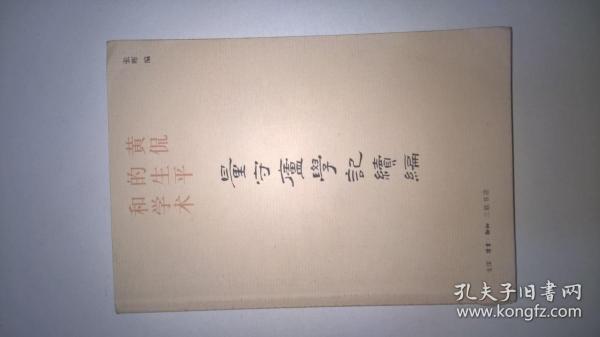 张晖 编
黄侃
的生平
和学术
量守廬學記續編
生活·讀書·新知 三联书店
孔夫子旧书网
www.kongfz.com